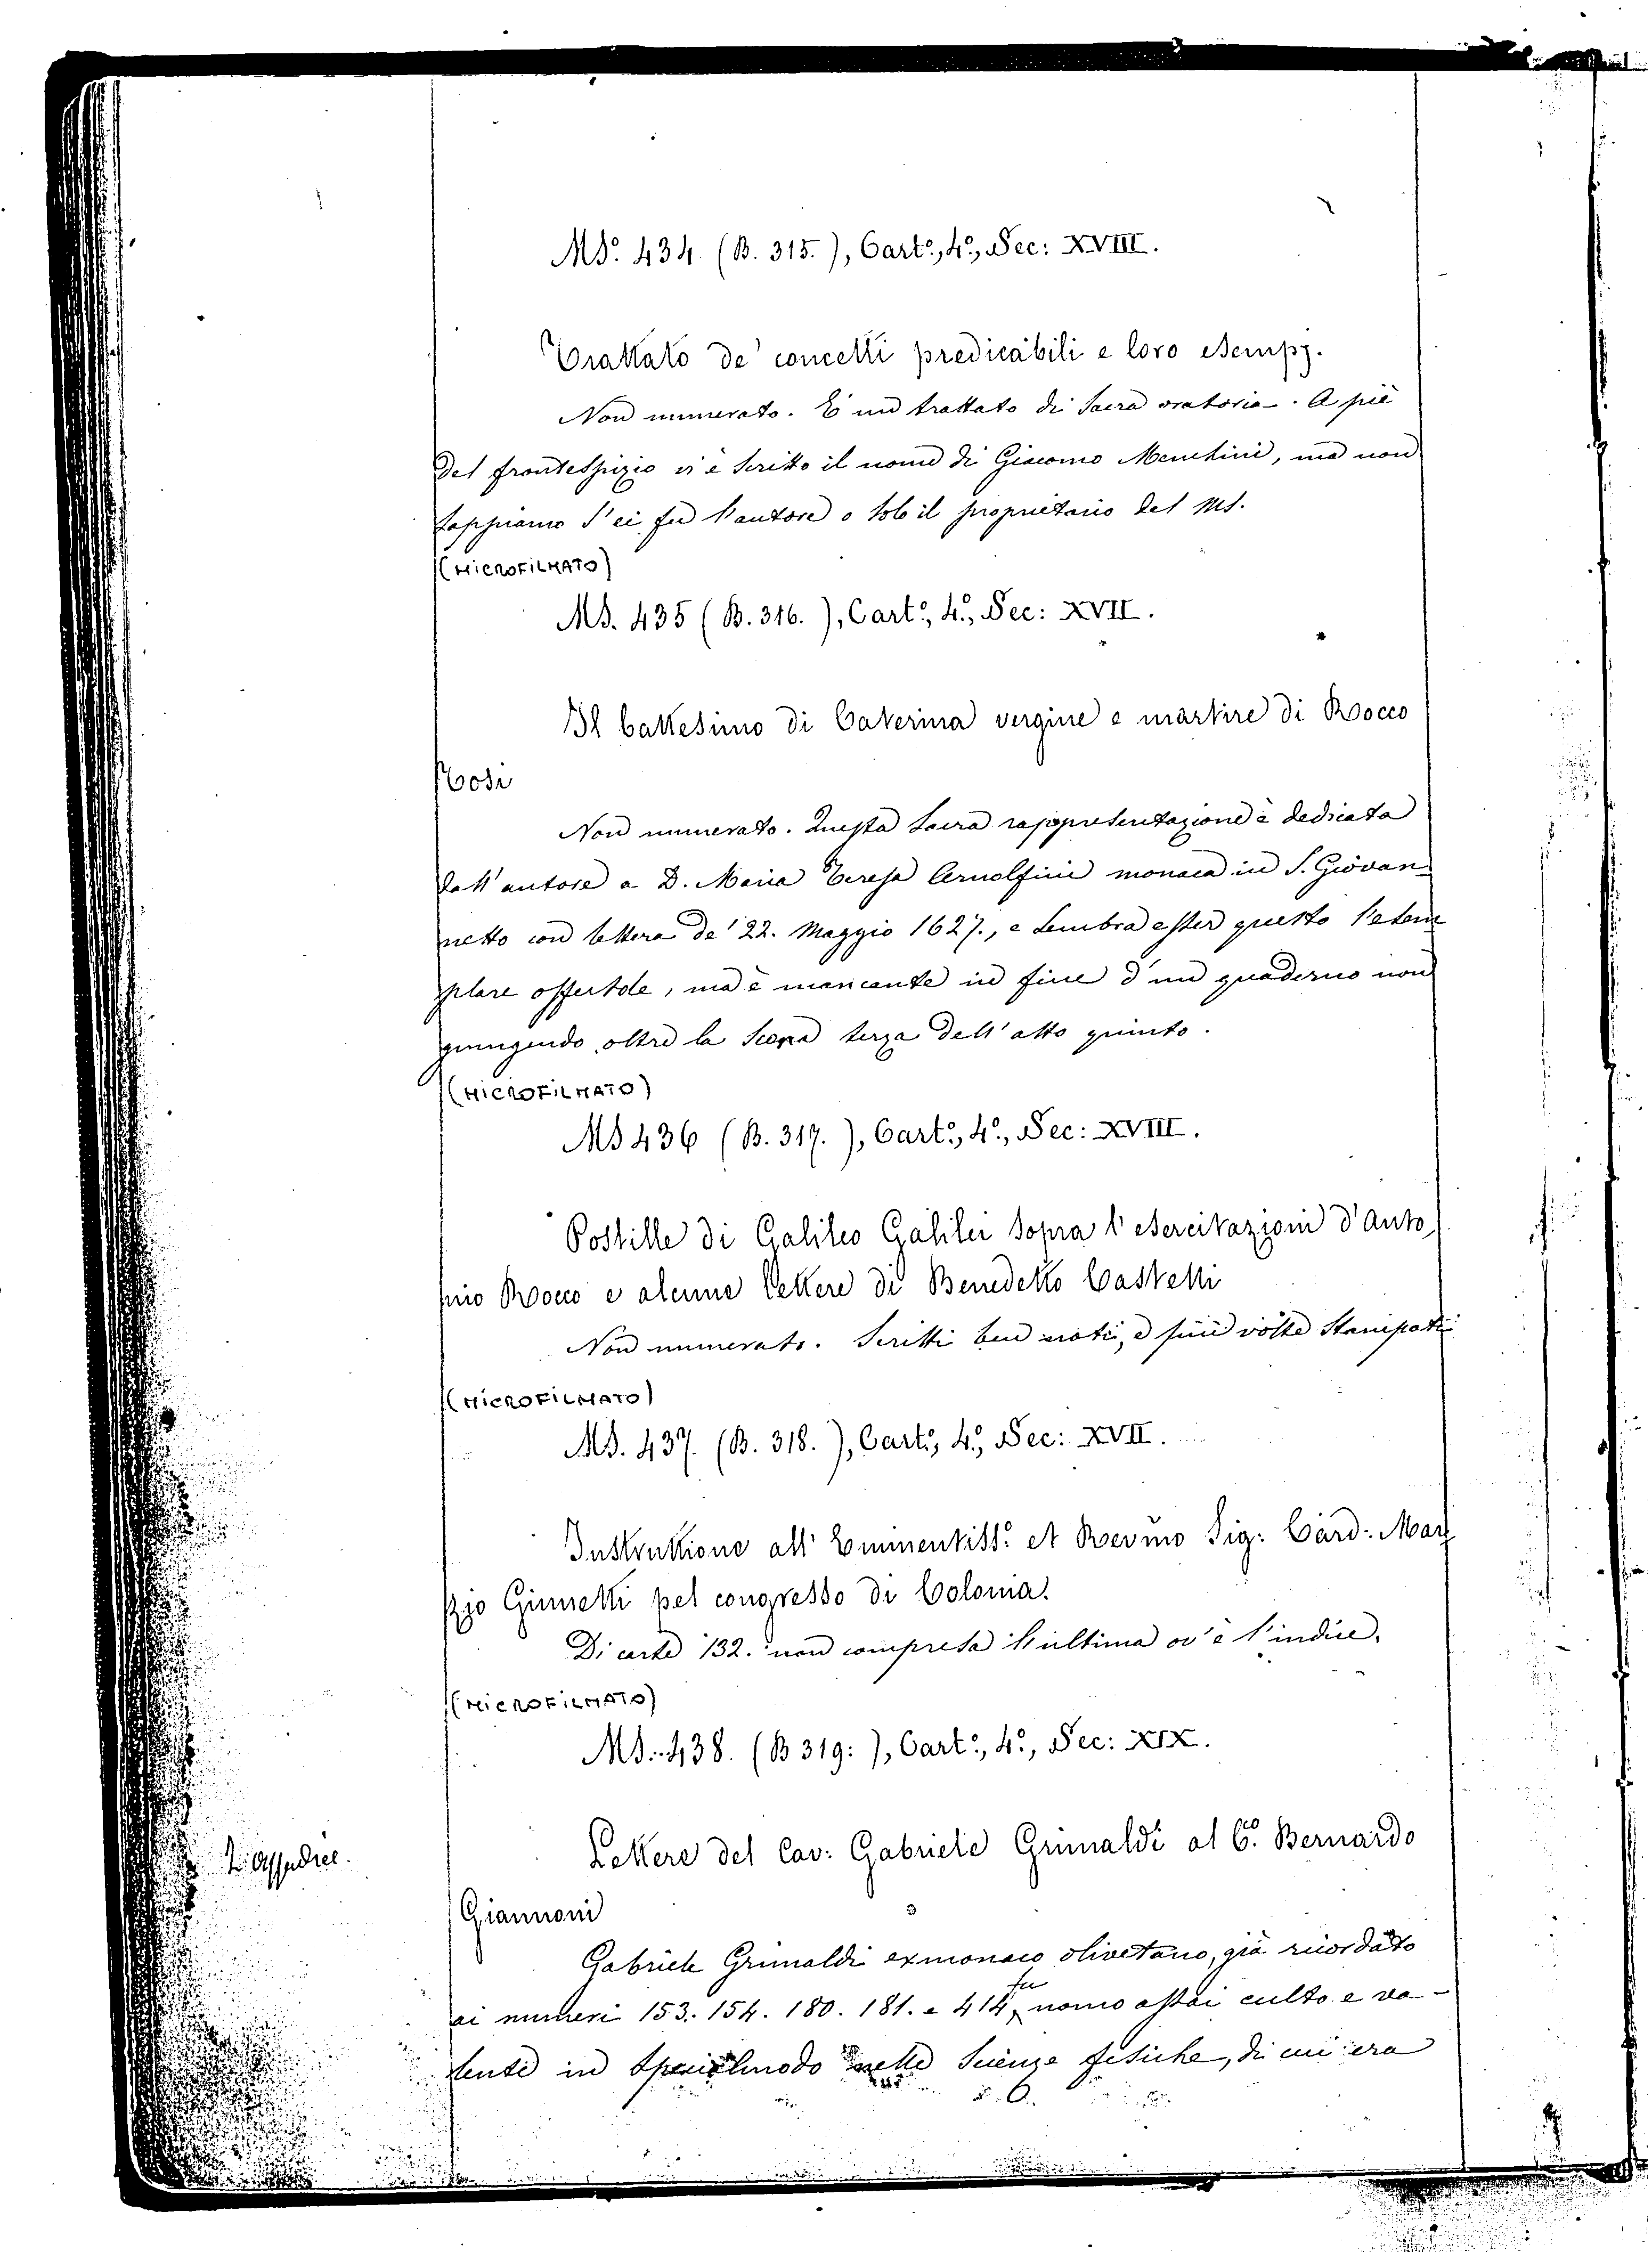 MS. 434. (B. 315.), Cart.º, 4º, Sec: XVIII.
Trattato de' concetti predicabili e loro esempj.
Non numerato. È un trattato di sacra oratoria. A piè
del frontespizio vi è scritto il nome di Giacomo Menchini, ma non
sappiamo s'ei fu l'autore o solo il proprietario del MS.
(MICROFILMATO)
MS. 435 (B. 316.), Cart.º, 4º, Sec: XVII.
Il battesimo di Caterina vergine e martire di Rocco
Nosi
Non numerato. Questa sacra rappresentazione è dedicata
dall'autore a D. Maria Teresa Arnolfini monaca in S. Giovan
netto con lettera de' 22. Maggio 1627., e sembra esser questo l'esem
plare offertole, ma è mancante in fine d'un quaderno non
giungendo oltre la scena terza dell'atto quinto.
(MICROFILMATO)
MS 436 (B. 317.), Cart.º, 4º, Sec: XVIII.
Postille di Galileo Galilei sopra l'esercitazioni d'Anto
nio Rocco e alcune lettere di Benedetto Castelli
Non numerato. Scritti ben noti, e più volte stampati
(MICROFILMATO)
MS. 437. (B. 318.), Cart.º, 4º, Sec: XVII.
Instruttione all' Eminentiss.º et Revmo Sig: Card: Mar
zio Ginnetti pel congresso di Colonia.
Di carte 132. non compresa l'ultima ov'è l'indice.
(MICROFILMATO)
MS. 438. (B 319.), Cart.º, 4º, Sec: XIX.
Lettere del Cav: Gabriele Grimaldi al C.º Bernardo
Giannoni
Gabriele Grimaldi exmonaco olivetano, già ricordato
ai numeri 153. 154. 180. 181. e 414, fu uomo assai culto e va-
lente in specialmodo nelle scienze fisiche, di cui era